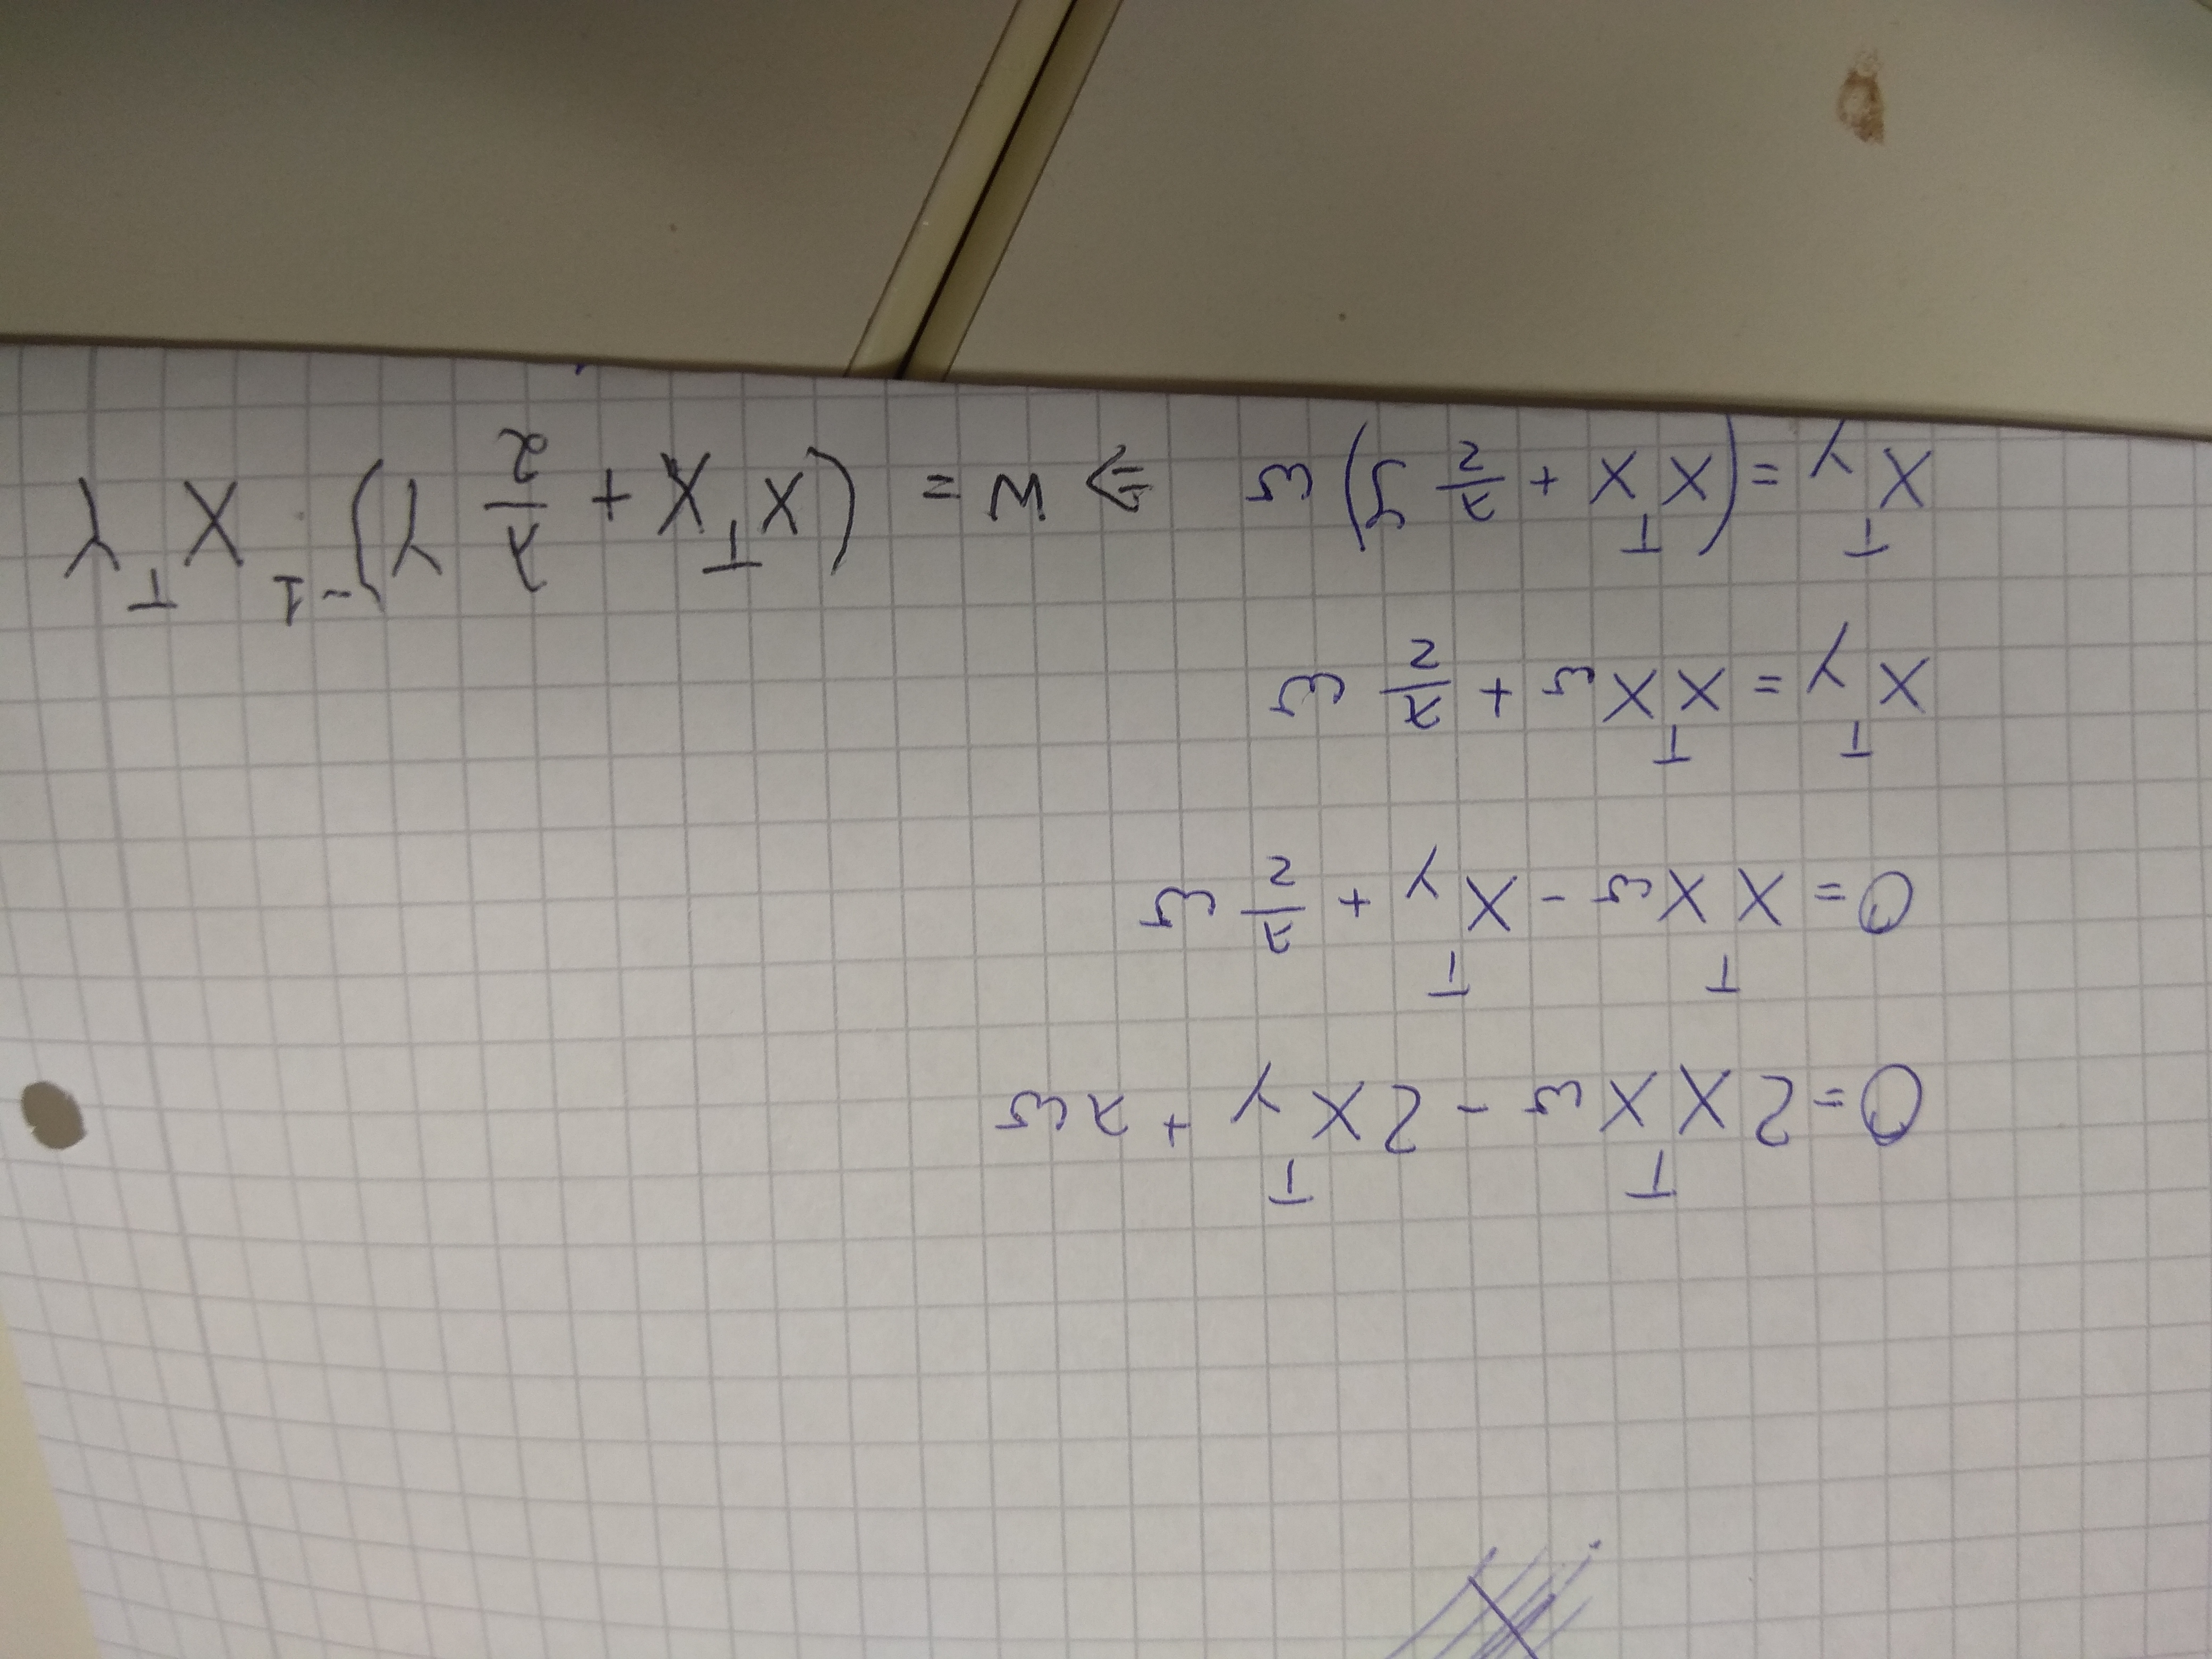 0 = 2X^T Xω - 2X^T y + λω
0 = X^T Xω - X^T y + λ/2 ω
X^T y = X^T Xω + λ/2 ω
X^T y = (X^T X + λ/2 Y) ω ⇒ W = (X^T X + λ/2 Y)^-1 X^T Y